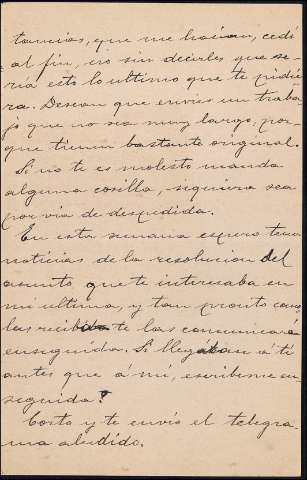 tancias, que me hacían, cedí
al fin, no sin decirles que se-
ría esto lo ultimo que te pidie-
ra. Desean que envies un traba-
jo que no sea muy largo, por-
que tienen bastante original.
Si no te es molesto manda
alguna cosilla, siquiera sea
por via de despedida.
En esta semana espero tener
noticias de la resolucion del
asunto que te interesaba en
mi ultima, y tan pronto como
las reciba te las comunicaré
enseguida. Si llegaban á tí
antes que á mí, escribeme en
seguida.
Corto y te envío el telegra-
ma aludido.